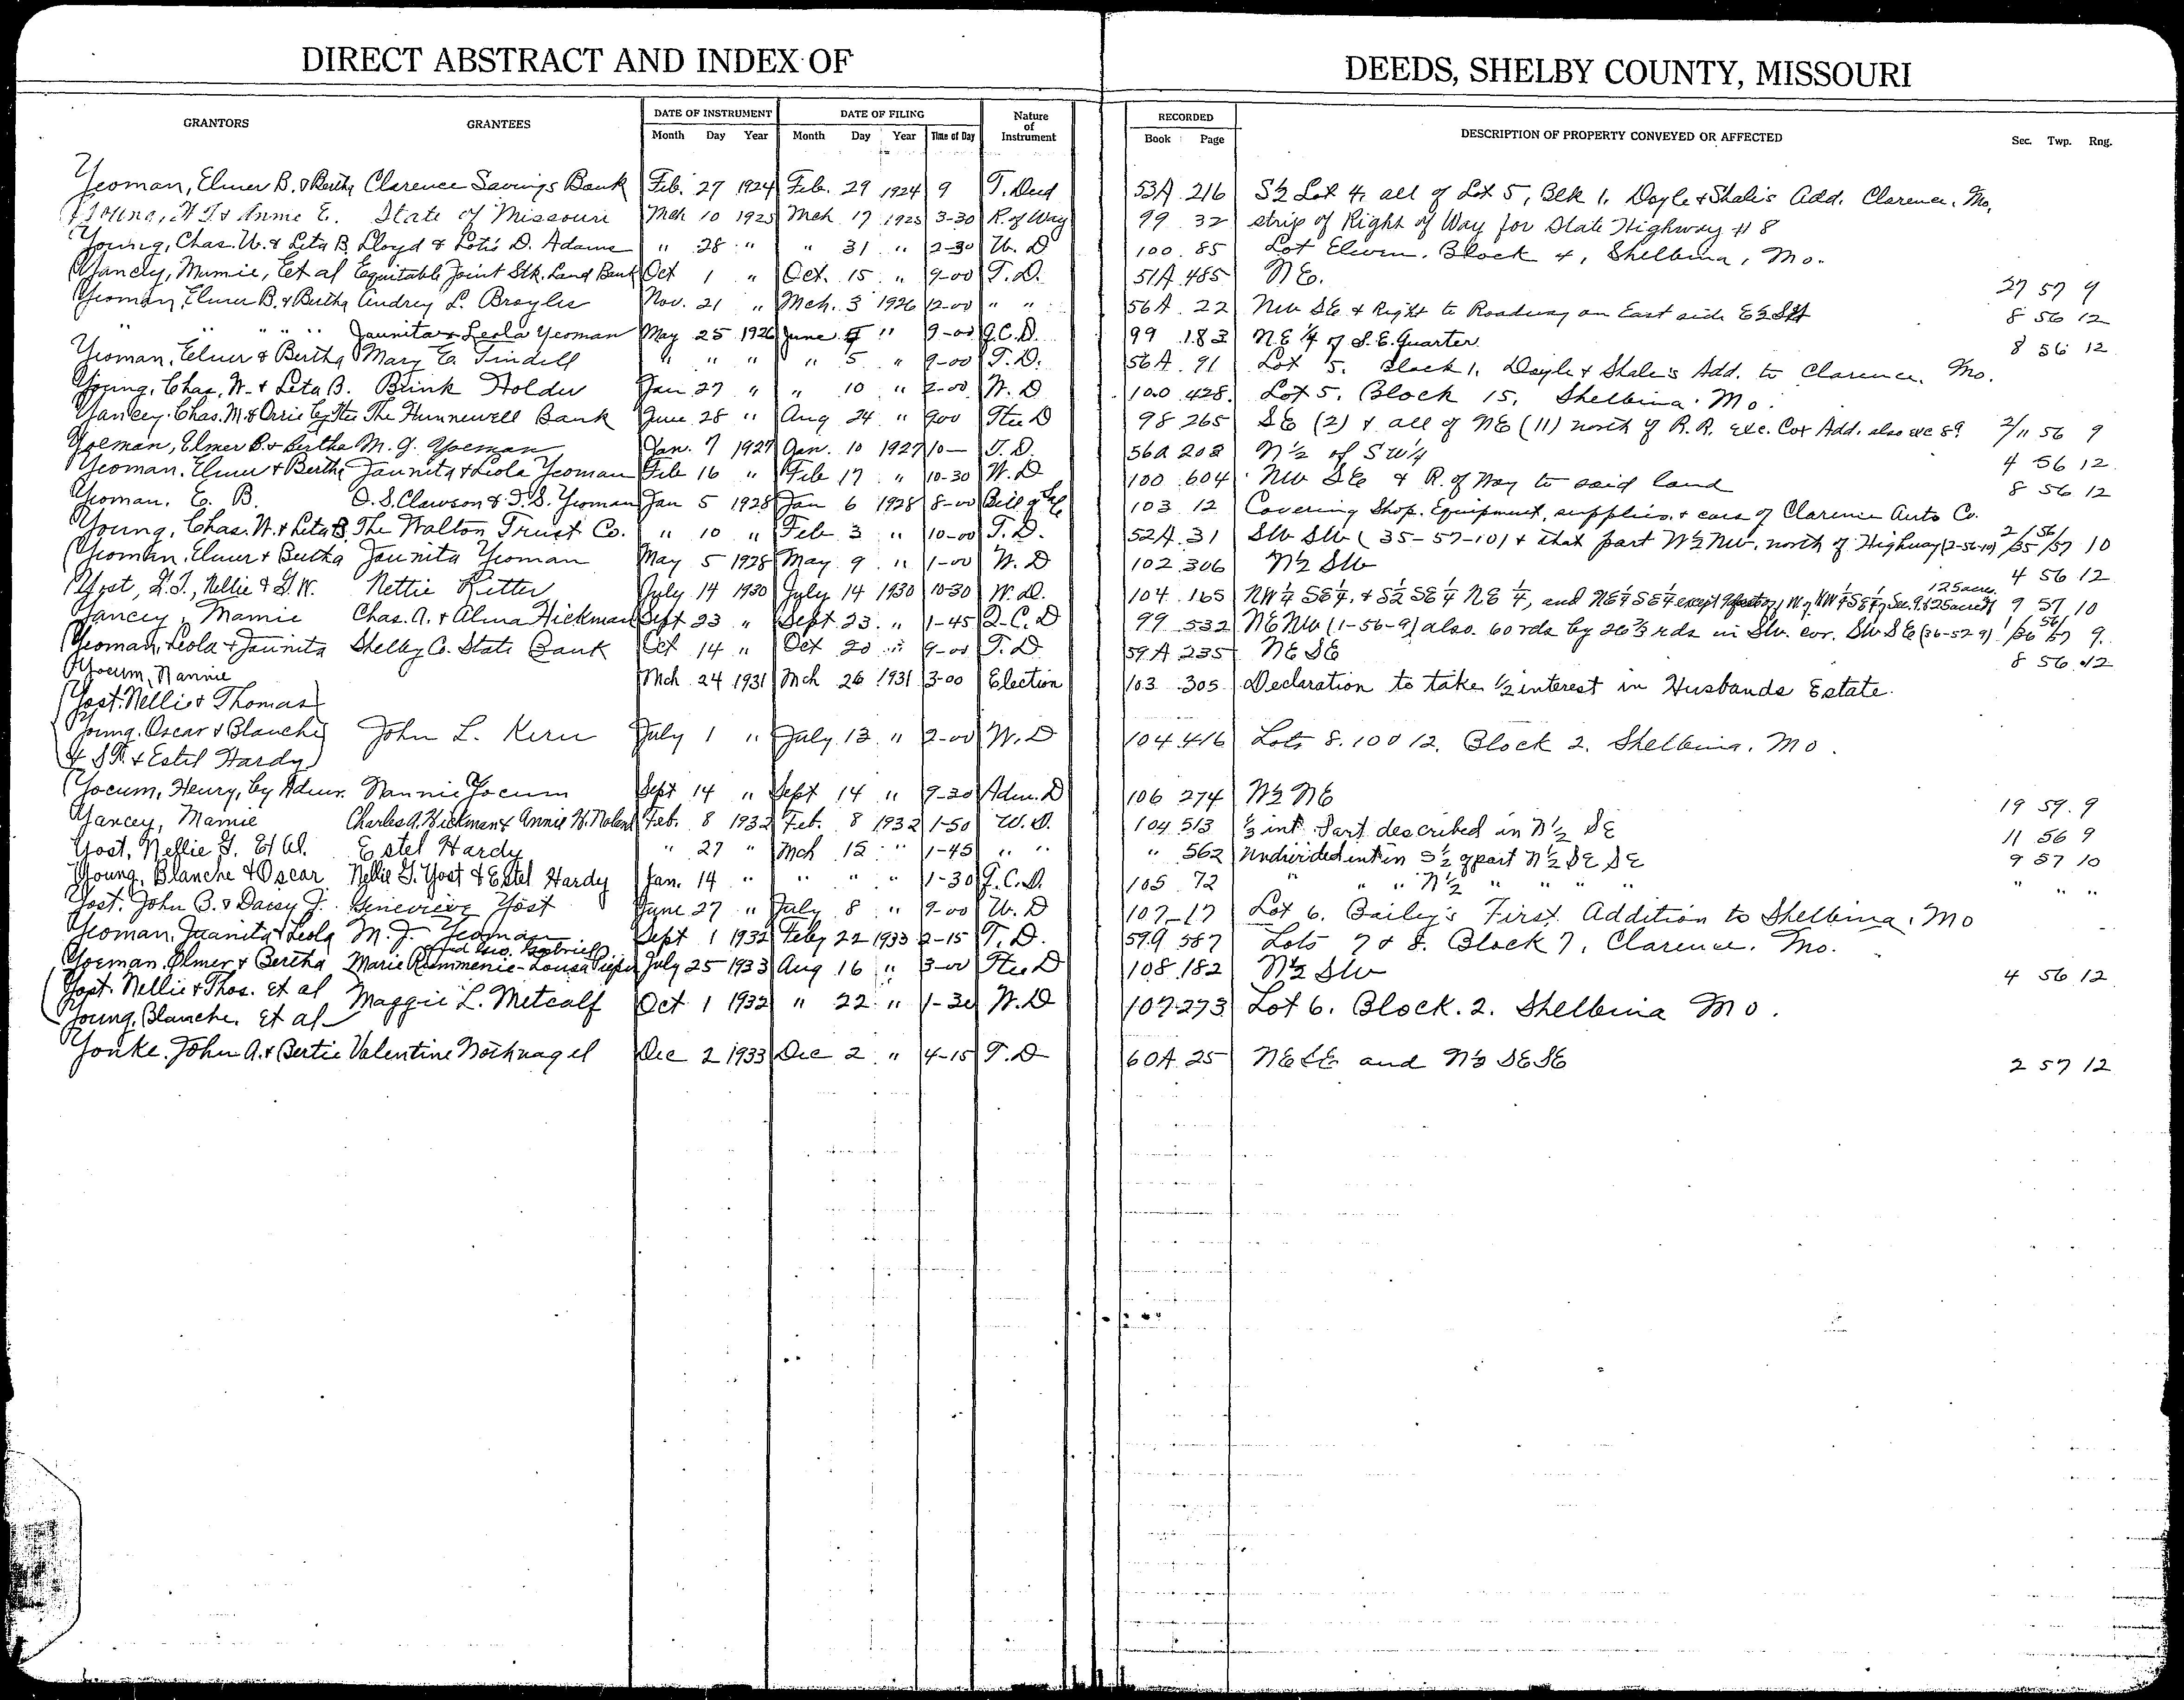 DIRECT ABSTRACT AND INDEX OF DEEDS, SHELBY COUNTY, MISSOURI
GRANTORS GRANTEES DATE OF INSTRUMENT DATE OF FILING Nature of Instrument RECORDED DESCRIPTION OF PROPERTY CONVEYED OR AFFECTED Sec. Twp. Rng.
Month Day Year Month Day Year Time of Day Book Page
Yeoman, Elmer B. & Bertha Clarence Savings Bank Feb. 27 1924 Feb. 29 1924 9 T. Deed 53A 216 S½ Lot 4, all of Lot 5, Blk 1, Doyle & Shale's Add. Clarence, Mo.
Young, & Annie E. State of Missouri Mch 10 1925 Mch. 17 1925 3-30 R. of Way 99 32 strip of Right of Way for State Highway # 8
Young, Chas. W. & Leta B. Lloyd & Lotis D. Adams " 28 " " 31 " 2-30 W. D 100 85 Lot Eleven, Block 4, Shelbina, Mo.
Yancey, Mamie, Et al Equitable Joint Stk. Land Bank Oct 1 " Oct. 15 " 9-00 T. D. 51A 485 NE. 27 57 9
Yeoman, Elmer B. & Bertha Audrey L. Broyles Nov. 21 " Mch. 3 1926 12-00 " " 56A 22 NW SE & Right to Roadway on East side 8 56 12
" " " " " Jaunita & Leola Yeoman May 25 1926 June " 9-00 Q.C.D. 99 183 N.E ¼ of S.E. Quarter 8 56 12
Yeoman, Elmer & Bertha Mary E. Tindell " " " " 5 " 9-00 T. D. 56A 91 Lot 5. Block 1, Doyle & Shale's Add. to Clarence, Mo.
Young, Chas. W. & Leta B. Brink Holder Jan 27 " " 10 " 2-00 W. D 100 428 Lot 5, Block 15, Shelbina, Mo.
Yancey, Chas. M. & Orrie by Tte The Hunnewell Bank June 28 " Aug 24 " 900 Ttee D 98 265 SE (2) & all of NE (11) north of R. R. exc. Cox Add. also exc 89 2/11 56 9
Yoeman, Elmer B. & Bertha M. J. Yoeman Jan. 7 1927 Jan. 10 1927 10— T. D. 56A 208 N½ of SW¼ 4 56 12
Yeoman, Elmer & Bertha Jaunita & Leola Yeoman Feb 16 " Feb 17 " 10-30 W. D 100 604 NW SE & R. of Way to said land 8 56 12
Yeoman, E. B. O. S. Clawson & I. S. Yeoman Jan 5 1928 Jan 6 1928 8-00 Bill of Sale 103 12 Covering Shop. Equipment, supplies, & cars of Clarence Auto Co.
Young, Chas. W. & Leta B. The Walton Trust Co. " 10 " Feb 3 " 10-00 T. D. 52A 31 SW SW (35-57-10) & that part W½ NW, north of Highway (2-56-10) 2/35 56/57 10
Yeoman, Elmer & Bertha Jaunita Yeoman May 5 1928 May 9 " 1-00 W. D 102 306 N½ SW 4 56 12
Yost, Nellie & Nettie Ritter July 14 1930 July 14 1930 10-30 W. D. 104 165 NW¼ SE¼, & S½ SE¼ NE¼, and NE¼ SE¼ except 125 acres 9 57 10
Yancey, Mamie Chas. A. & Alma Hickman Sept 23 " Sept. 23 " 1-45 Q. C. D 99 532 NE NW (1-56-9) also. 60 rds by 26⅔ rds in SW. cor. SW SE (36-57-9) 1/36 56/57 9
Yeoman, Leola & Jaunita Shelby Co. State Bank Oct 14 " Oct 20 " 9-00 T. D 59A 235 NE SE 8 56 12
Yocum, Nannie Mch 24 1931 Mch 26 1931 3-00 Election 103 305 Declaration to take ½ interest in Husbands Estate.
Yost. Nellie & Thomas
Young. Oscar & Blanche John L. Kern July 1 " July 13 " 2-00 W. D 104 416 Lots 8. 10 & 12. Block 2. Shelbina, Mo.
& Estel Hardy
Yocum, Henry, by Admr. Nannie Yocum Sept 14 " Sept 14 " 9-30 Adm. D 106 274 W½ NE 19 59 9
Yancey, Mamie Charles A. Hickman & Annie H. Noland Feb. 8 1932 Feb. 8 1932 1-50 W. D. 104 513 ⅓ int. Part described in N½ SE 11 56 9
Yost, Nellie G. Et al. Estel Hardy " 27 " Mch 15 " 1-45 " " " 562 Undivided int in S½ of part N½ SE SE 9 57 10
Young, Blanche & Oscar Nellie G. Yost & Estel Hardy Jan. 14 " " " " 1-30 Q. C. D. 105 72 " " " N½ " " " " " " "
Yost, John B. & Daisy J. Genevieve Yost June 27 " July 8 " 9-00 W. D 107-17 Lot 6. Baily's First Addition to Shelbina, Mo
Yeoman, Juanita & Leola M. J. Yeoman Sept 1 1932 Feby 22 1933 2-15 T. D. 59A 587 Lots 7 & 8. Block 7, Clarence, Mo.
and Geo. Gabriel
Yoeman, Elmer & Bertha Marie Rummenie-Louisa Pieper July 25 1933 Aug 16 " 3-00 Ttee D 108 182 N½ SW 4 56 12
Yost. Nellie & Thos. Et al Maggie L. Metcalf Oct 1 1932 " 22 " 1-30 W. D 107 273 Lot 6. Block. 2. Shelbina Mo.
Young, Blanche. Et al
Yonke. John A. & Bertie Valentine Nothnagel Dec 2 1933 Dec 2 " 4-15 T. D 60A 25 NE SE and N½ SE SE 2 57 12